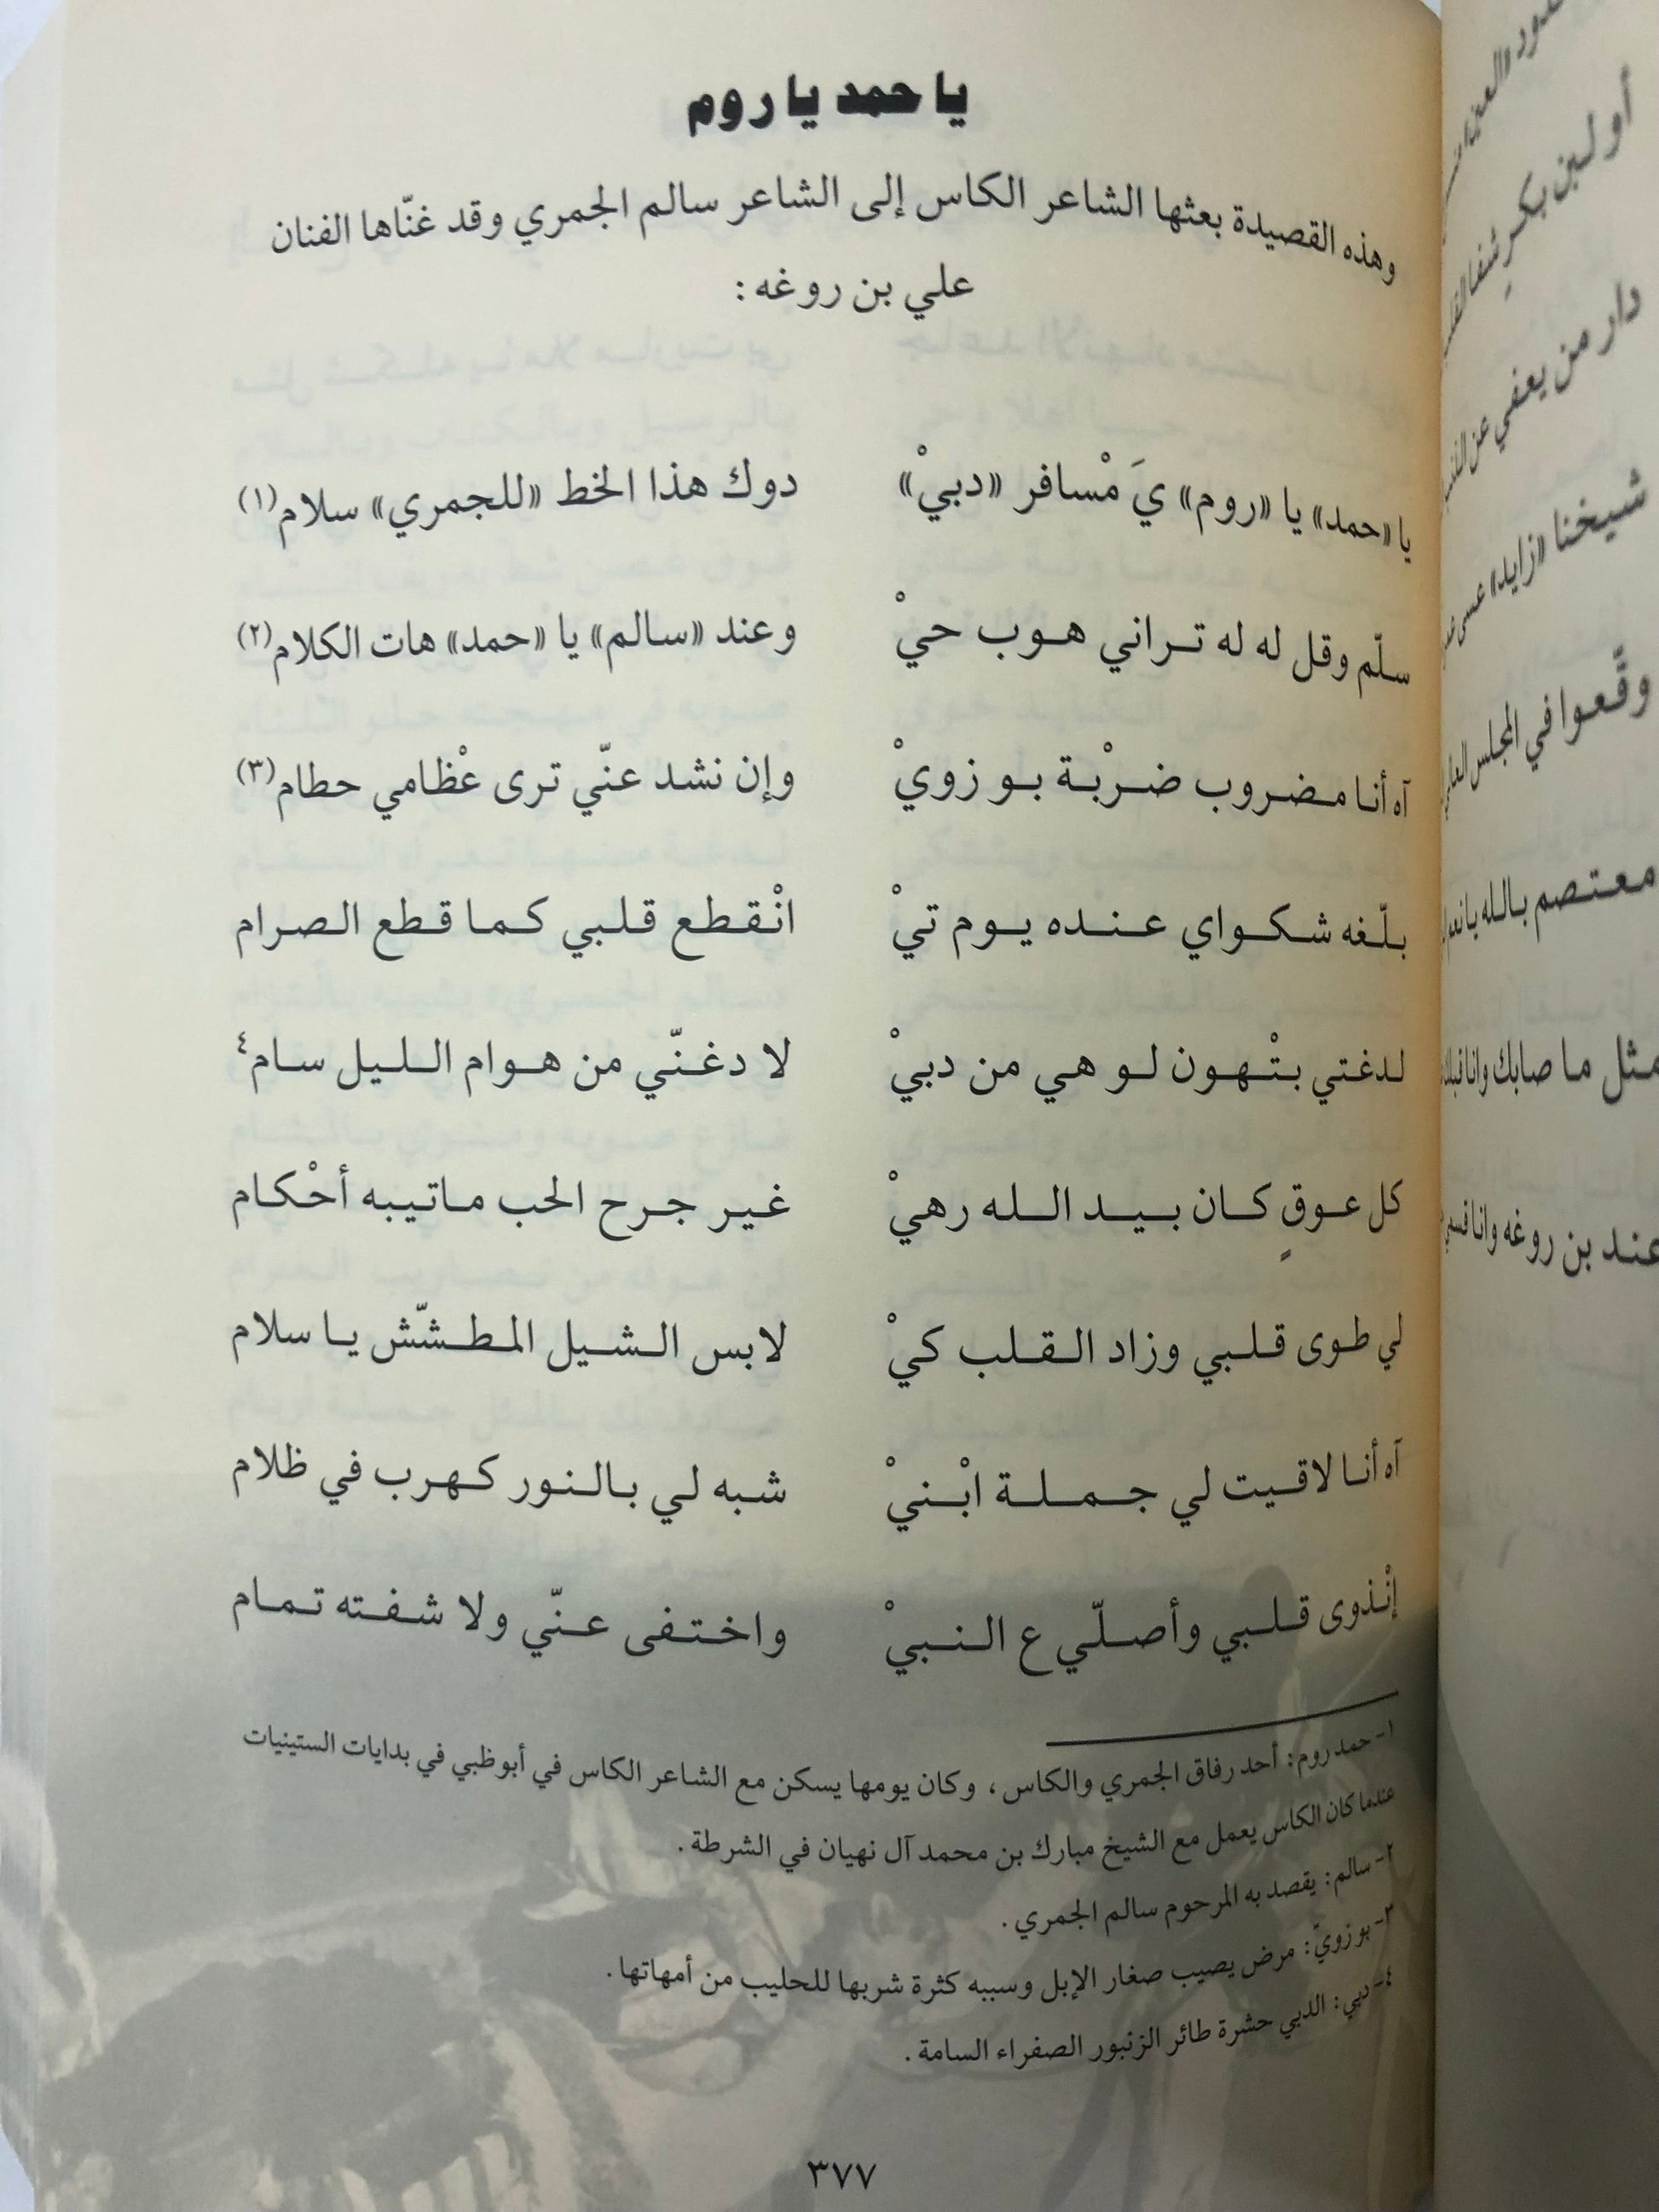 يا حمد يا روم
وهذه القصيدة بعثها الشاعر الكاس إلى الشاعر سالم الجمري وقد غنّاها الفنان
علي بن روغه :
يا «حمد» يا «روم» يَ مْسافر «دبيْ» دوك هذا الخط «للجمري» سلام(١)
سلّم وقل له له تراني هوب حيْ وعند «سالم» يا «حمد» هات الكلام(٢)
آه أنا مضروب ضرْبة بو زويْ وإن نشد عنّي ترى عْظامي حطام(٣)
بلّغه شكواي عنده يوم تيْ انْقطع قلبي كما قطع الصرام
لدغتي بتْهون لو هي من دبيْ لا دغنّي من هوام الليل سام٤
كل عوقٍ كان بيد الله رهيْ غير جرح الحب ماتيبه أحْكام
لي طوى قلبي وزاد القلب كيْ لابس الشيل المطشّش يا سلام
آه أنا لاقيت لي جملة ابْنيْ شبه لي بالنور كهرب في ظلام
إنْذوى قلبي وأصلّي ع النبيْ واختفى عنّي ولا شفته تمام
١- حمد روم: أحد رفاق الجمري والكاس ، وكان يومها يسكن مع الشاعر الكاس في أبوظبي في بدايات الستينيات
عندما كان الكاس يعمل مع الشيخ مبارك بن محمد آل نهيان في الشرطة .
٢- سالم: يقصد به المرحوم سالم الجمري .
٣- بو زويّ: مرض يصيب صغار الإبل وسببه كثرة شربها للحليب من أمهاتها .
٤- دبي: الدبي حشرة طائر الزنبور الصفراء السامة .
٣٧٧
أو لبن بكرٍ شفا
دار من يعفي عن
شيخنا «زايد» عسى
وقّعوا في المجلس
معتصم بالله يا
مثل ما صابك وانا
عند بن روغه وانا